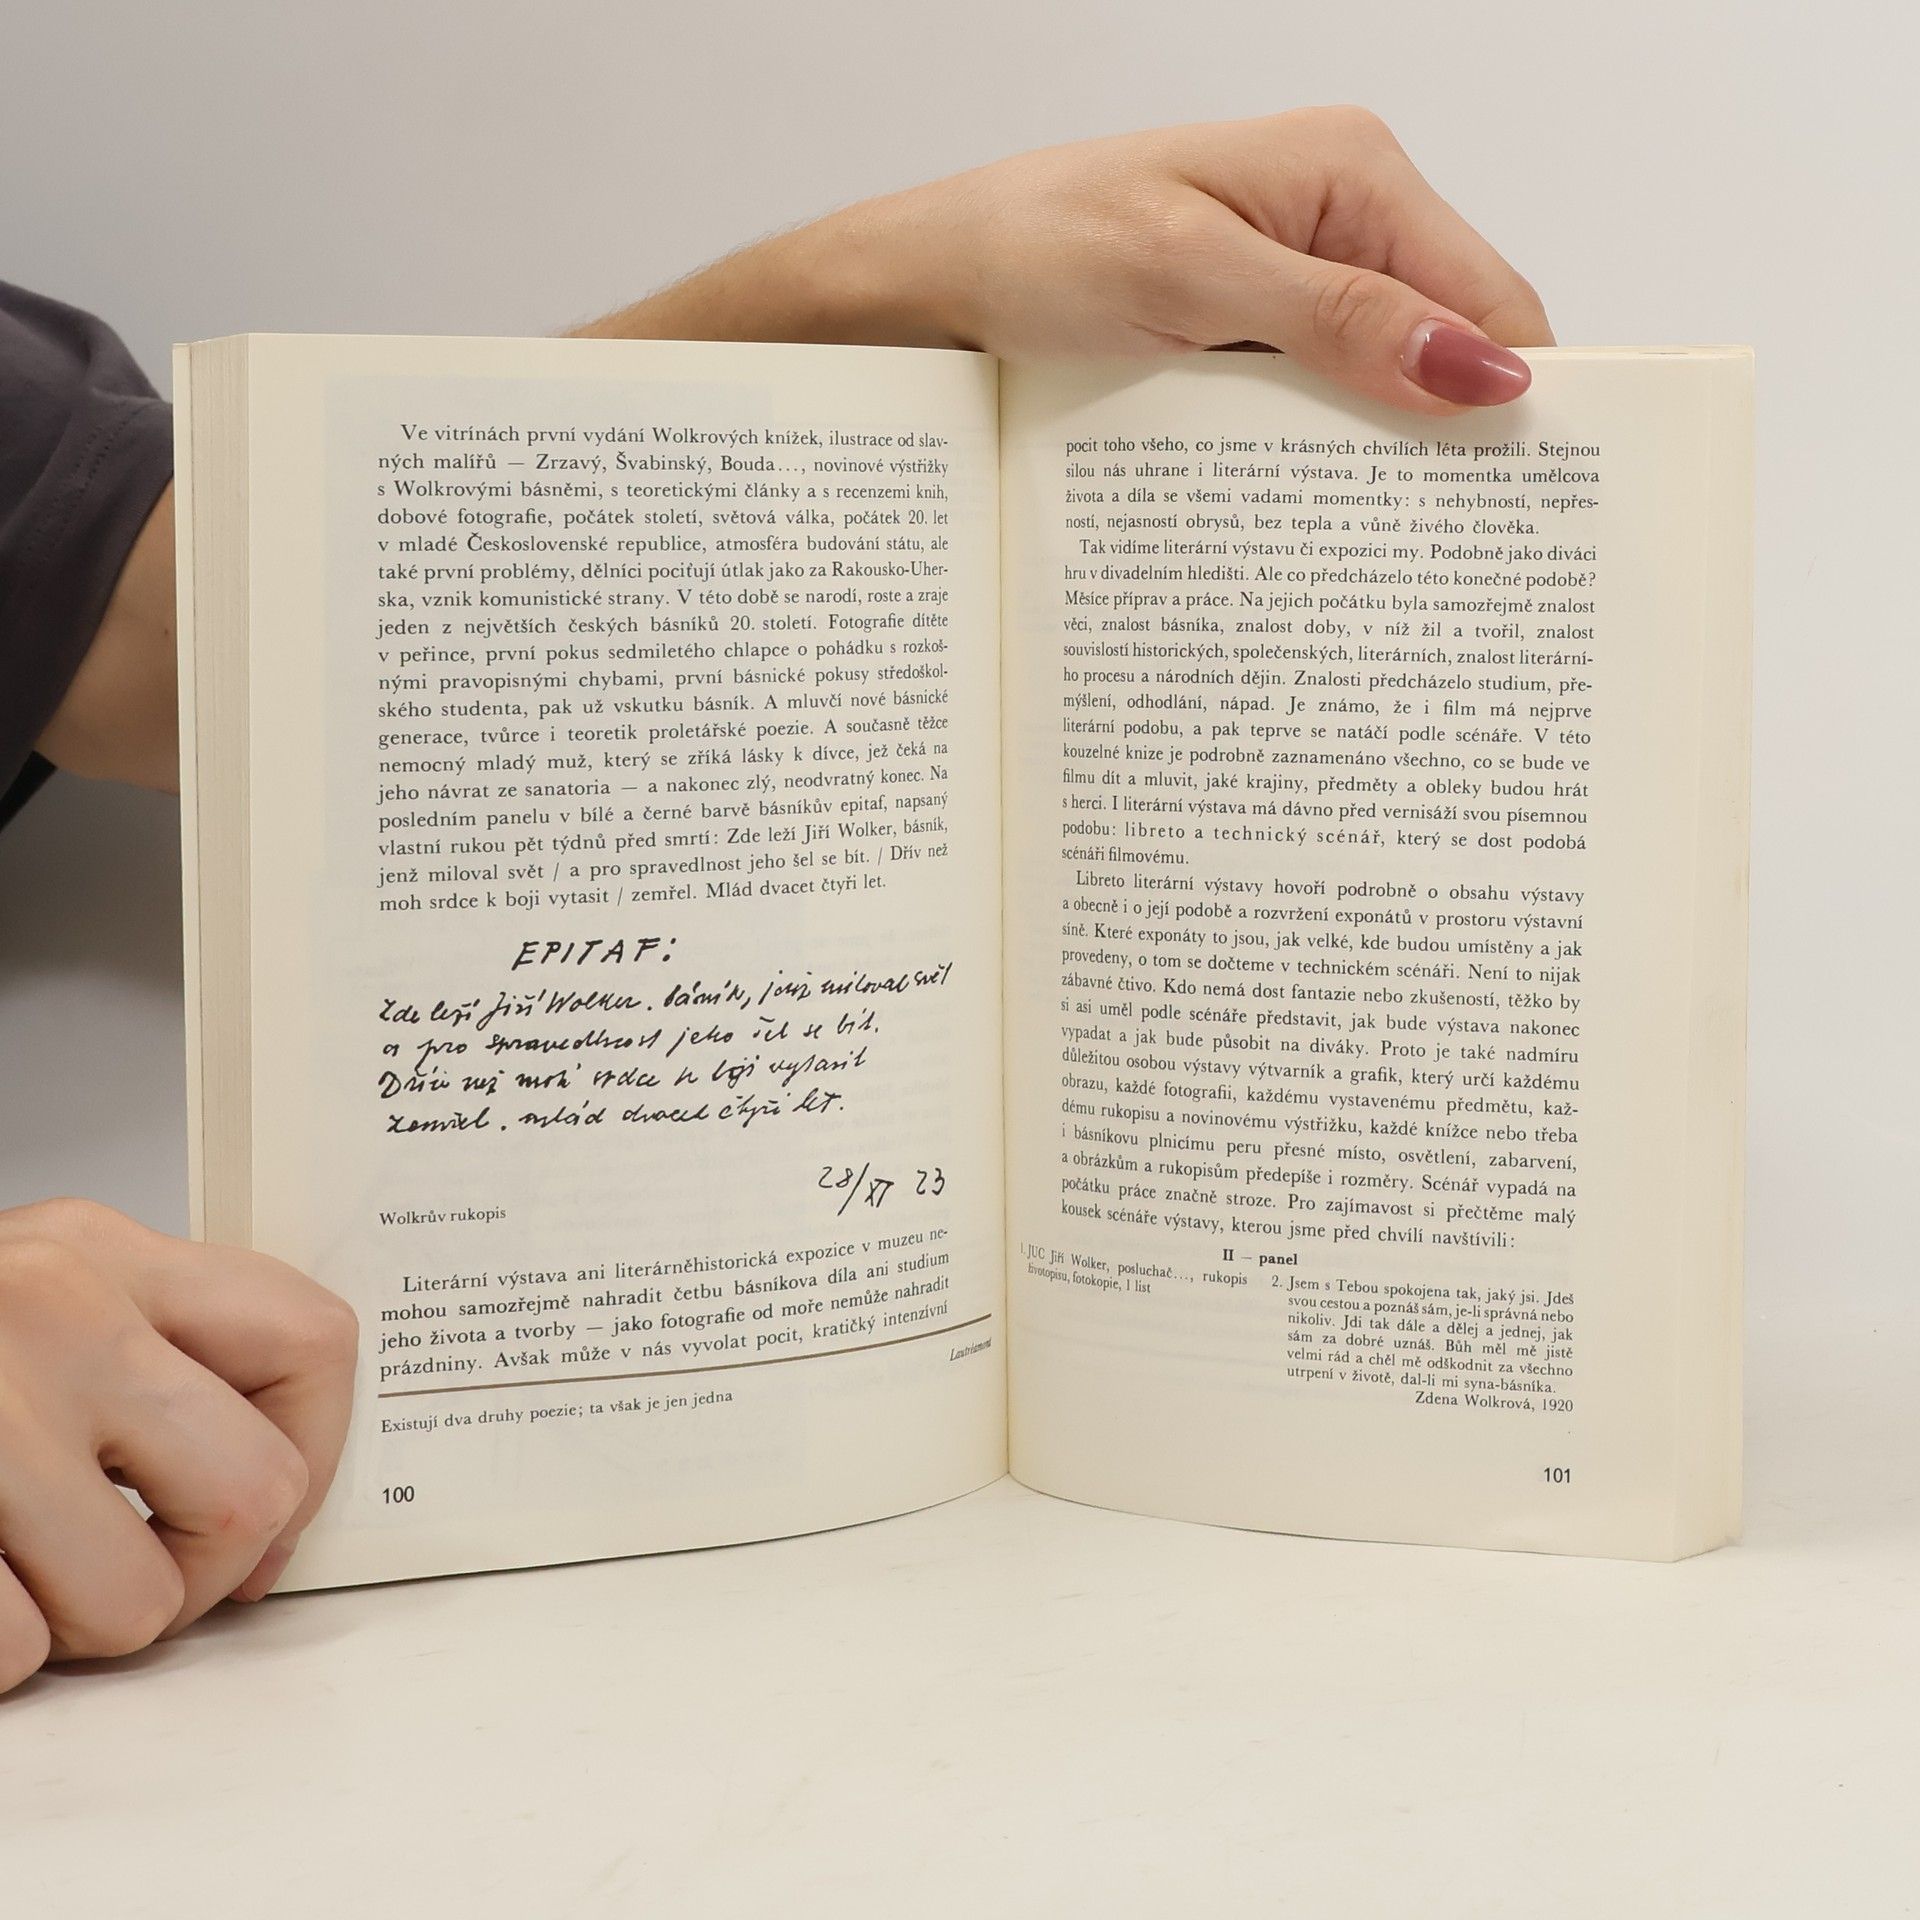 Ve vitrínách první vydání Wolkrových knížek, ilustrace od slav-
ných malířů — Zrzavý, Švabinský, Bouda..., novinové výstřižky
s Wolkrovými básněmi, s teoretickými články a s recenzemi knih,
dobové fotografie, počátek století, světová válka, počátek 20. let
v mladé Československé republice, atmosféra budování státu, ale
také první problémy, dělníci pociťují útlak jako za Rakousko-Uher-
ska, vznik komunistické strany. V této době se narodí, roste a zraje
jeden z největších českých básníků 20. století. Fotografie dítěte
v peřince, první pokus sedmiletého chlapce o pohádku s rozkoš-
nými pravopisnými chybami, první básnické pokusy středoškol-
ského studenta, pak už vskutku básník. A mluvčí nové básnické
generace, tvůrce i teoretik proletářské poezie. A současně těžce
nemocný mladý muž, který se zříká lásky k dívce, jež čeká na
jeho návrat ze sanatoria — a nakonec zlý, neodvratný konec. Na
posledním panelu v bílé a černé barvě básníkův epitaf, napsaný
vlastní rukou pět týdnů před smrtí: Zde leží Jiří Wolker, básník,
jenž miloval svět / a pro spravedlnost jeho šel se bít. / Dřív než
moh srdce k boji vytasit / zemřel. Mlád dvacet čtyři let.
EPITAF:
Zde leží Jiří Wolker. básník, jenž miloval svět
a pro spravedlnost jeho šel se bít.
Dříve než moh' srdce k boji vytasit
zemřel. mlád dvacet čtyři let.
28/XI 23
Wolkrův rukopis
Literární výstava ani literárněhistorická expozice v muzeu ne-
mohou samozřejmě nahradit četbu básníkova díla ani studium
jeho života a tvorby — jako fotografie od moře nemůže nahradit
prázdniny. Avšak může v nás vyvolat pocit, kratičký intenzívní
Lautréamont
Existují dva druhy poezie; ta však je jen jedna
100
pocit toho všeho, co jsme v krásných chvílích léta prožili. Stejnou
silou nás uhrane i literární výstava. Je to momentka umělcova
života a díla se všemi vadami momentky: s nehybností, nepřes-
ností, nejasností obrysů, bez tepla a vůně živého člověka.
Tak vidíme literární výstavu či expozici my. Podobně jako diváci
hru v divadelním hledišti. Ale co předcházelo této konečné podobě?
Měsíce příprav a práce. Na jejich počátku byla samozřejmě znalost
věci, znalost básníka, znalost doby, v níž žil a tvořil, znalost
souvislostí historických, společenských, literárních, znalost literární-
ho procesu a národních dějin. Znalosti předcházelo studium, pře-
mýšlení, odhodlání, nápad. Je známo, že i film má nejprve
literární podobu, a pak teprve se natáčí podle scénáře. V této
kouzelné knize je podrobně zaznamenáno všechno, co se bude ve
filmu dít a mluvit, jaké krajiny, předměty a obleky budou hrát
s herci. I literární výstava má dávno před vernisáží svou písemnou
podobu: libreto a technický scénář, který se dost podobá
scénáři filmovému.
Libreto literární výstavy hovoří podrobně o obsahu výstavy
a obecně i o její podobě a rozvržení exponátů v prostoru výstavní
síně. Které exponáty to jsou, jak velké, kde budou umístěny a jak
provedeny, o tom se dočteme v technickém scénáři. Není to nijak
zábavné čtivo. Kdo nemá dost fantazie nebo zkušeností, těžko by
si asi uměl podle scénáře představit, jak bude výstava nakonec
vypadat a jak bude působit na diváky. Proto je také nadmíru
důležitou osobou výstavy výtvarník a grafik, který určí každému
obrazu, každé fotografii, každému vystavenému předmětu, kaž-
dému rukopisu a novinovému výstřižku, každé knížce nebo třeba
i básníkovu plnicímu peru přesné místo, osvětlení, zabarvení,
a obrázkům a rukopisům předepíše i rozměry. Scénář vypadá na
počátku práce značně stroze. Pro zajímavost si přečtěme malý
kousek scénáře výstavy, kterou jsme před chvílí navštívili:
II — panel
1. JUC Jiří Wolker, posluchač..., rukopis
životopisu, fotokopie, 1 list
2. Jsem s Tebou spokojena tak, jaký jsi. Jdeš
svou cestou a poznáš sám, je-li správná nebo
nikoliv. Jdi tak dále a dělej a jednej, jak
sám za dobré uznáš. Bůh měl mě jistě
velmi rád a chěl mě odškodnit za všechno
utrpení v životě, dal-li mi syna-básníka.
Zdena Wolkrová, 1920
101